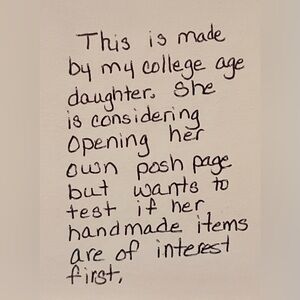 This is made
by my college age
daughter. She
is considering
Opening her
own posh page
but wants to
test if her
handmade items
are of interest
first.